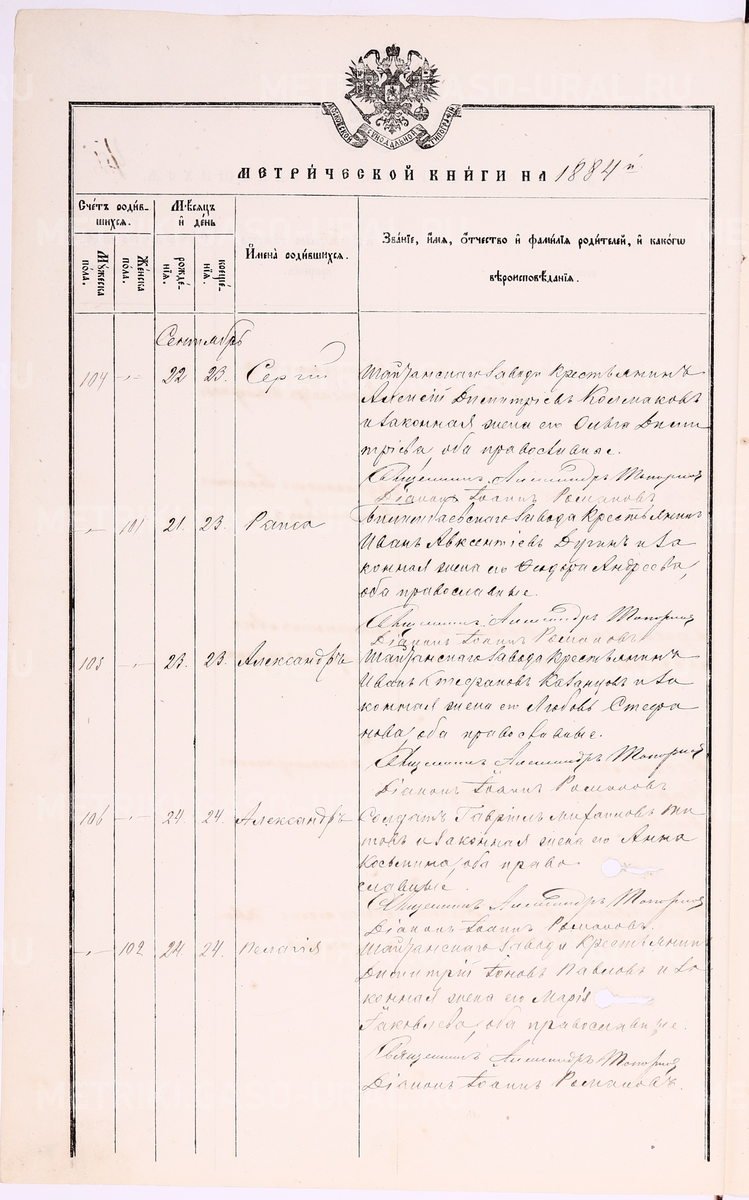 МЕТРИЧЕСКОЙ КНИГИ НА 1884й
Счетъ родив-
шихся.
Мужеска
пола.
Женска
пола.
Мѣсяцъ
и день
рожде-
нія.
креще-
нія.
Имена родившихся.
Званіе, имя, отчество и фамилія родителей, и какого
вѣроисповѣданія.
Сентябрь
104 -"- 22 23. Сергій
Шайтанскаго завода крестьянинъ
Алексій Димитріевъ Колмаковъ
и законная жена его Ольга Дими
тріева, оба православные.
Священникъ Александръ
Діаконъ Іоаннъ Романовъ
-"- 101 21. 23. Раиса
завода крестьянинъ
Иванъ Авксентіевъ Дугинъ и за
конная жена его Ѳеодора Андреева,
оба православные.
Священникъ Александръ
Діаконъ Іоаннъ Романовъ
105 -"- 23. 23. Александръ
Шайтанскаго завода крестьянинъ
Иванъ Стефановъ Казанцовъ и за
конная жена его Любовь Стефа
нова, оба православные.
Священникъ Александръ
Діаконъ Іоаннъ Романовъ
106 -"- 24. 24. Александръ
Солдатъ Гавріилъ Михаиловъ Ти
товъ и законная жена его Анна
Косьмина, оба право
славные.
Священникъ Александръ
Діаконъ Іоаннъ Романовъ.
-"- 102 24. 24. Пелагія
Шайтанскаго завода крестьянинъ
Димитрій Іоновъ Павловъ и за
конная жена его Марія
Іаковлева, оба православные.
Священникъ Александръ
Діаконъ Іоаннъ Романовъ.